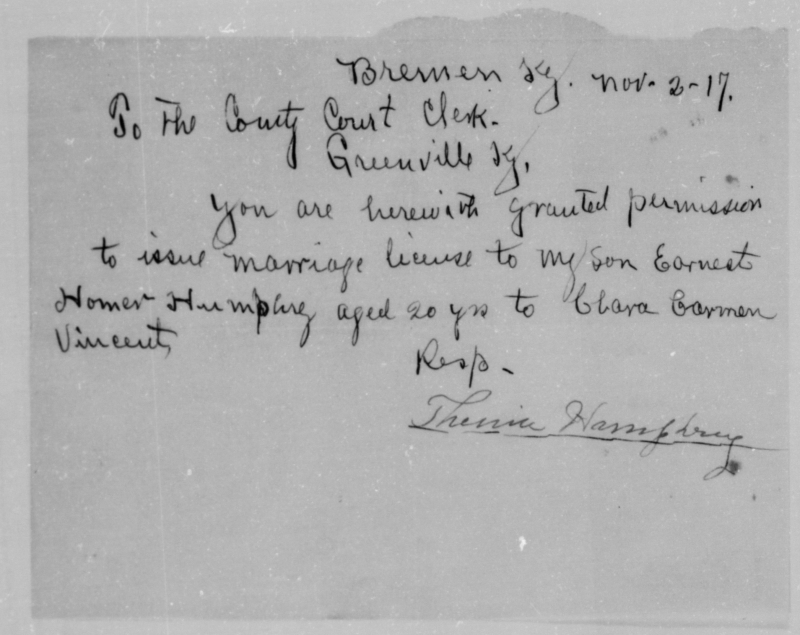 Bremen Ky. Nov. 2-17.
To The County Court Clerk.
Greenville Ky.
You are herewith granted permission
to issue marriage license to my son Earnest
Homer Humphrey aged 20 yrs to Clara Carmen
Vincent
Resp.
Humphrey